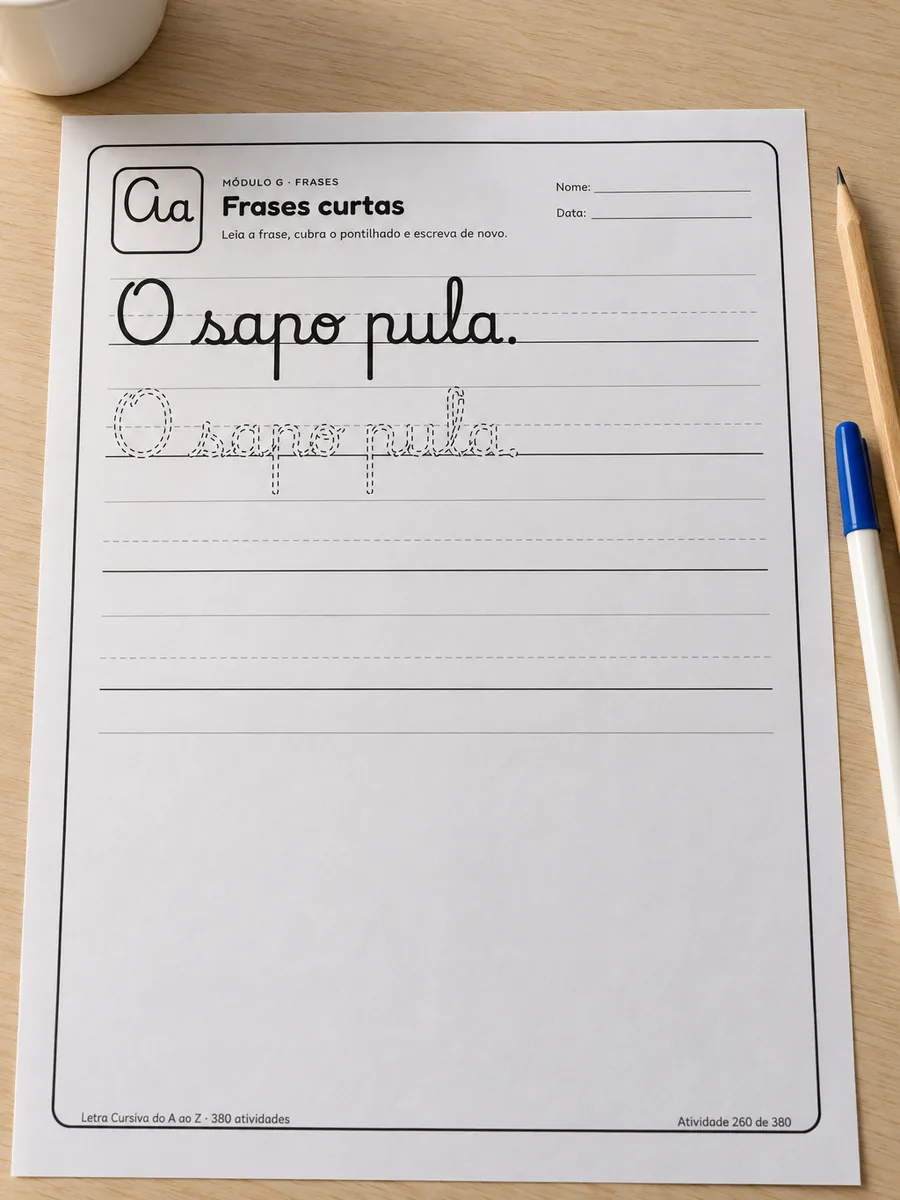 Aa
MÓDULO G · FRASES
Frases curtas
Leia a frase, cubra o pontilhado e escreva de novo.
Nome:
Data:
O sapo pula.
O sapo pula.
Letra Cursiva do A ao Z · 380 atividades
Atividade 260 de 380